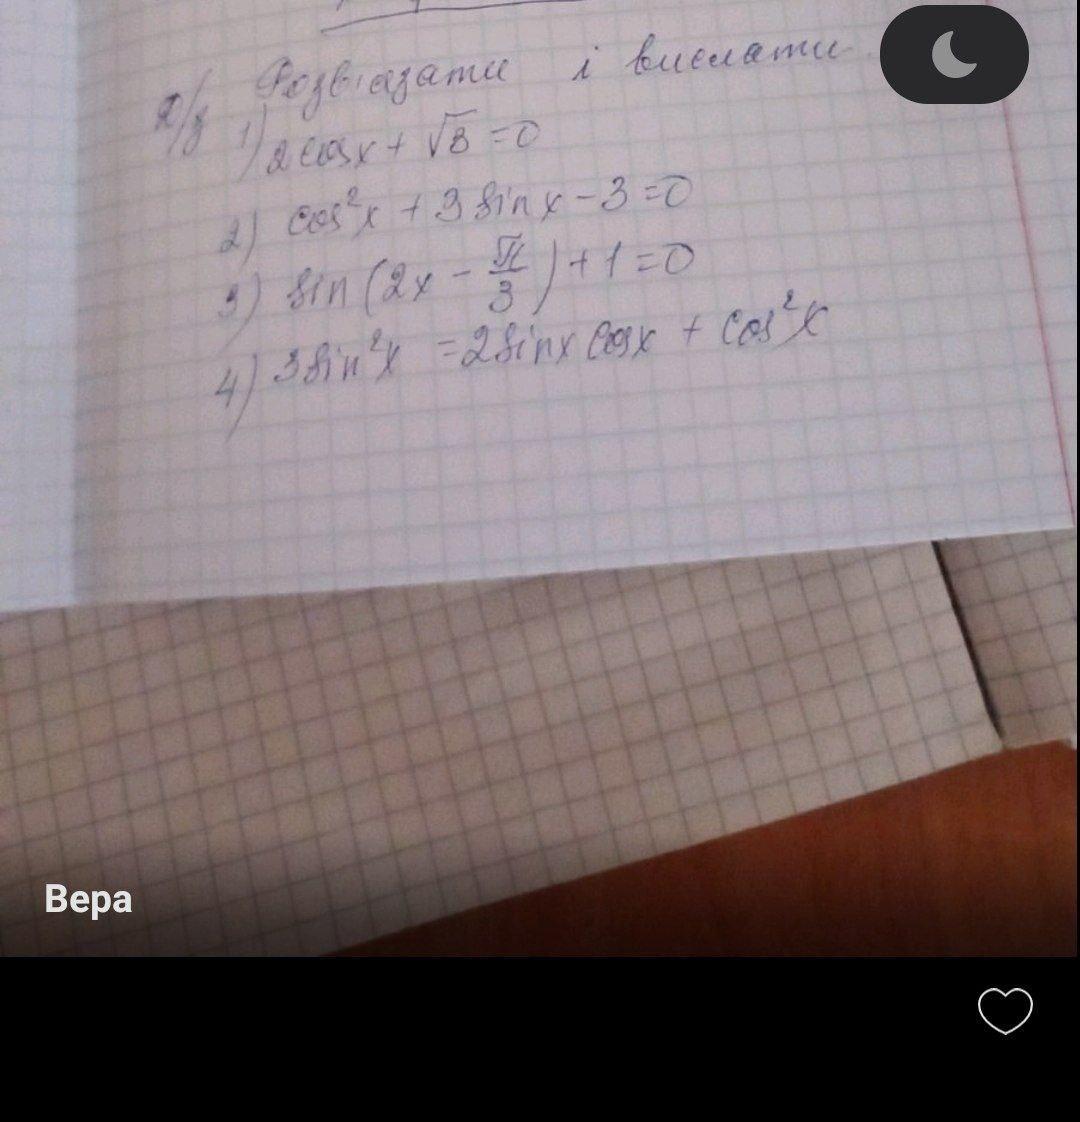 Д/з Розв'язати і вислати
1) 2cosx + √3 = 0
2) cos²x + 3 sin x - 3 = 0
3) sin (2x - π/3) + 1 = 0
4) 3sin²x = 2sinx cosx + cos²x
Вера